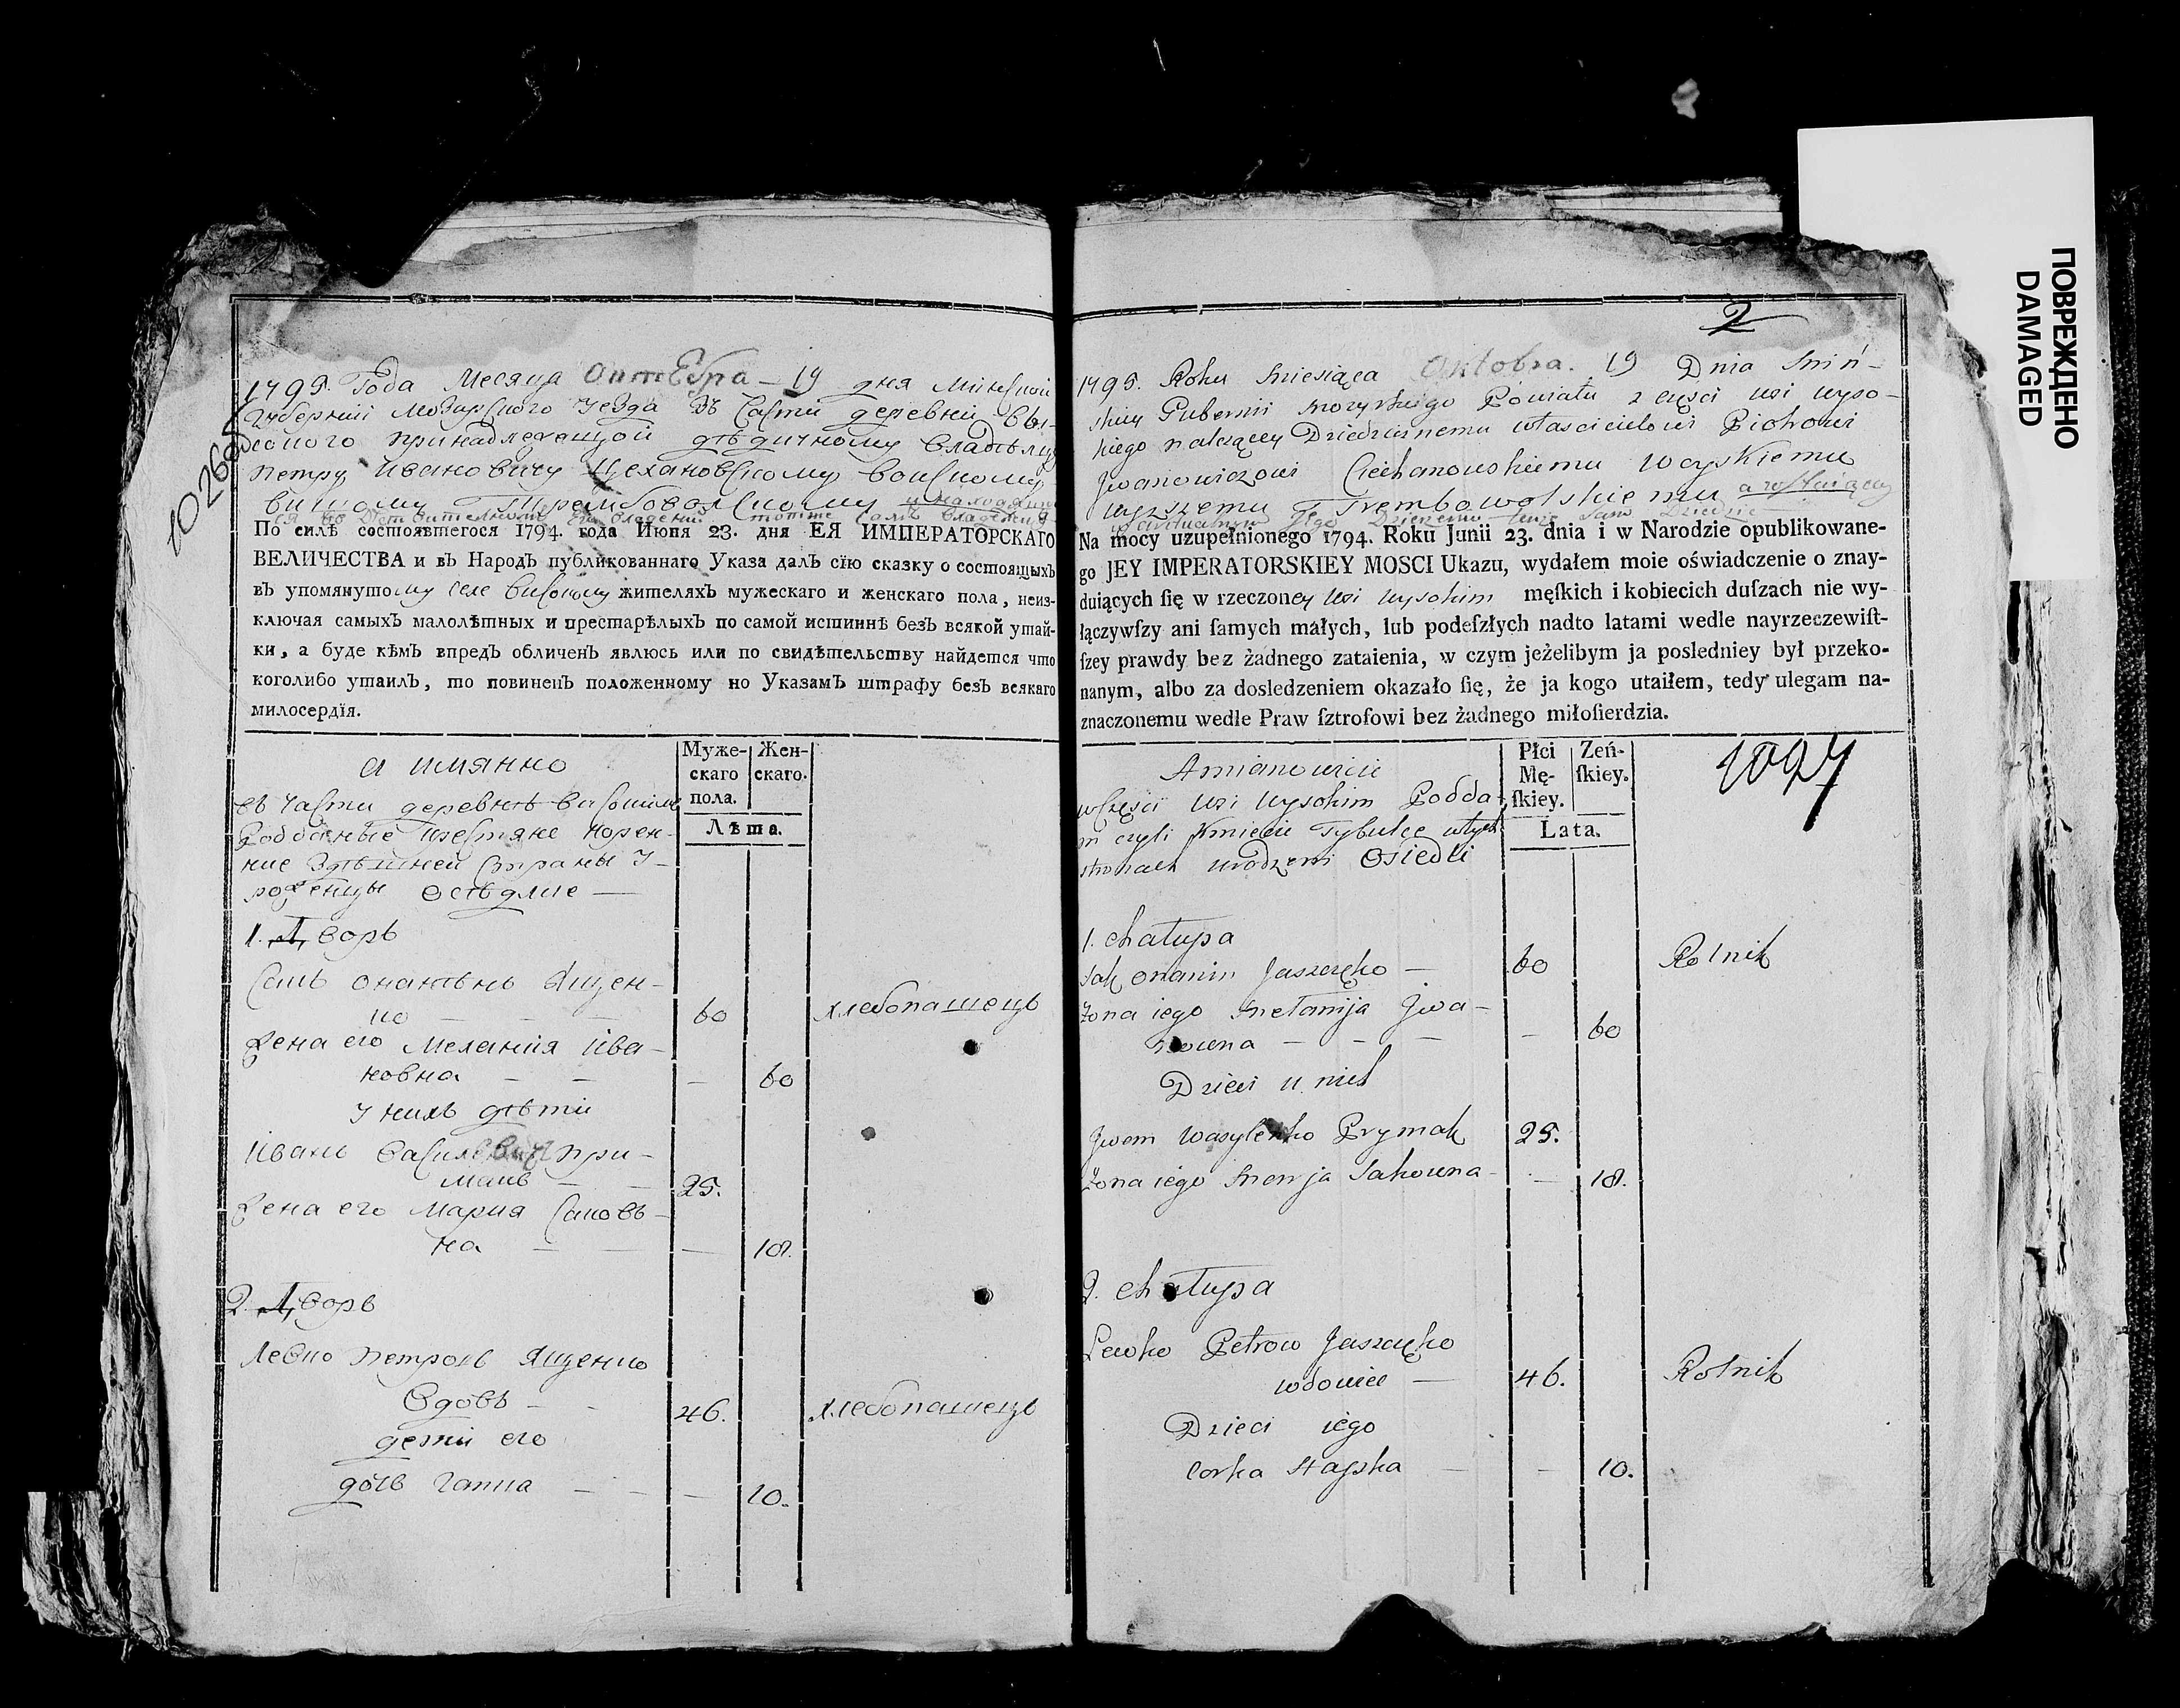 ПОВРЕЖДЕНО
DAMAGED
1026об
1795. Года Месяца Октебра — 19 дня Минской
Губерніи Мозырского уезда въ Части деревни Вы-
сокого принадлежащой дѣдичному владѣлцу
Петру Ивановичу Цехановскому воискому
вишому Трембовольскому
По силѣ состоявшегося 1794. года Июня 23. дня ЕЯ ИМПЕРАТОРСКАГО
ВЕЛИЧЕСТВА и въ Народъ публикованнаго Указа далъ сїю сказку о состоящыхъ
въ упомянутому селе Високому жителяхъ мужескаго и женскаго пола, неиз-
ключая самыхъ малолѣтных и престарѣлыхъ по самой истиннѣ безъ всякой утай-
ки, а буде кѣмъ впредъ обличенъ явлюсь или по свидѣтельству найдется что
коголибо утаилъ, то повиненъ положенному но Указамъ штрафу безъ всякаго
милосердїя.
а имянно
Муже-
скаго
пола.
Жен-
скаго.
Лѣта.
въ части деревнѣ високимъ
Подданые крестяне корен-
ние здѣшней Страны у-
роженцы Оседлие —
1. Дворъ
Сакъ онанѣнъ Ященко — 60 хлебопашецъ
Жена его Мелания Ива-
новна — — — 60
У нихъ дѣти
Иванъ Василевичъ при-
макъ — — 25.
Жена его Мария Саковъ-
на — — — 18.
2. Дворъ
Левко Петровъ Ященко
Вдовъ — — 46. хлебопашецъ
дети его
дочь Ганна — — — 10.
2
1795. Roku Miesiąca Oktobra. 19 Dnia Miń-
skiey Gubernii Mozyrskiego Powiatu z części wsi Wyso-
kiego należącey Dziedzicznemu właścicielowi Piotrowi
Jwanowiczowi Ciechanowskiemu Woyskiemu
wyższemu Trembowolskiemu
Na mocy uzupełnionego 1794. Roku Junii 23. dnia i w Narodzie opublikowane-
go JEY IMPERATORSKIEY MOSCI Ukazu, wydałem moie oświadczenie o znay-
duiących ſię w rzeczoney wsi wysokim męſkich i kobiecich duſzach nie wy-
łączywſzy ani ſamych małych, lub podeſzłych nadto latami wedle nayrzeczewiſt-
ſzey prawdy bez żadnego zataienia, w czym jeżelibym ja posledniey był przeko-
nanym, albo za dosledzeniem okazało ſię, że ja kogo utaiłem, tedy ulegam na-
znaczonemu wedle Praw ſztrofowi bez żadnego miłoſierdzia.
Amianowicie
Płci
Mę-
ſkiey.
Zeń-
ſkiey.
Lata.
1027
w części wsi wysokim Podda-
ni czyli Kmiecie Tybulce w tych
stronach urodzeni Osiedli
1. chałupa
Sak onanin Jaszczęko — 60 Rolnik
żona iego Mełanija Jwa-
nowna — — — — 60
Dzieci u nich
Jwan Wasylenko Prymak 25.
żona iego Marja Sakowna — — 18.
2. chałupa
Lewko Petrow Jaszczęko
wdowiec — 46. Rolnik
Dzieci iego
corka Hapka — — 10.